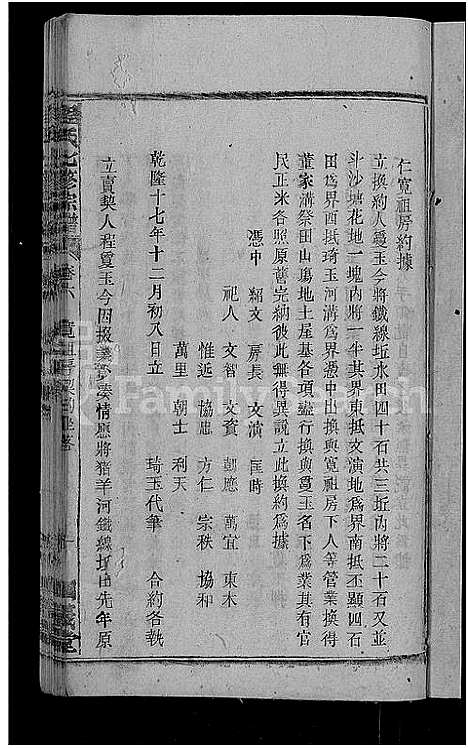 仁寬祖房約據
立換約人袞玉今將鐵線坵水田四十石共三坵內將二十石又並
斗沙塘花地一塊內將一半其界東抵文演地為界南抵丕顯四石
田為界西抵琦玉河溝為界北抵為界憑中出換與寬祖房下人等管業換得
董家溝祭田山塲地土屋基各項盡行換與袞玉名下為業其有官
民正米各照原舊完納彼此無得異說立此換約為據
憑中 紹文 房長 文演 匡時
祀人 文智 文資 朝應 萬宜 東木
惟近 協忠 方仁 宗秩 協和
萬里 朝士 利天
乾隆十七年十二月初八日立 琦玉代筆 合約各執
立賣契人程袞玉今因
情應將猪羊河鐵線坵田先年原
FamilySearch